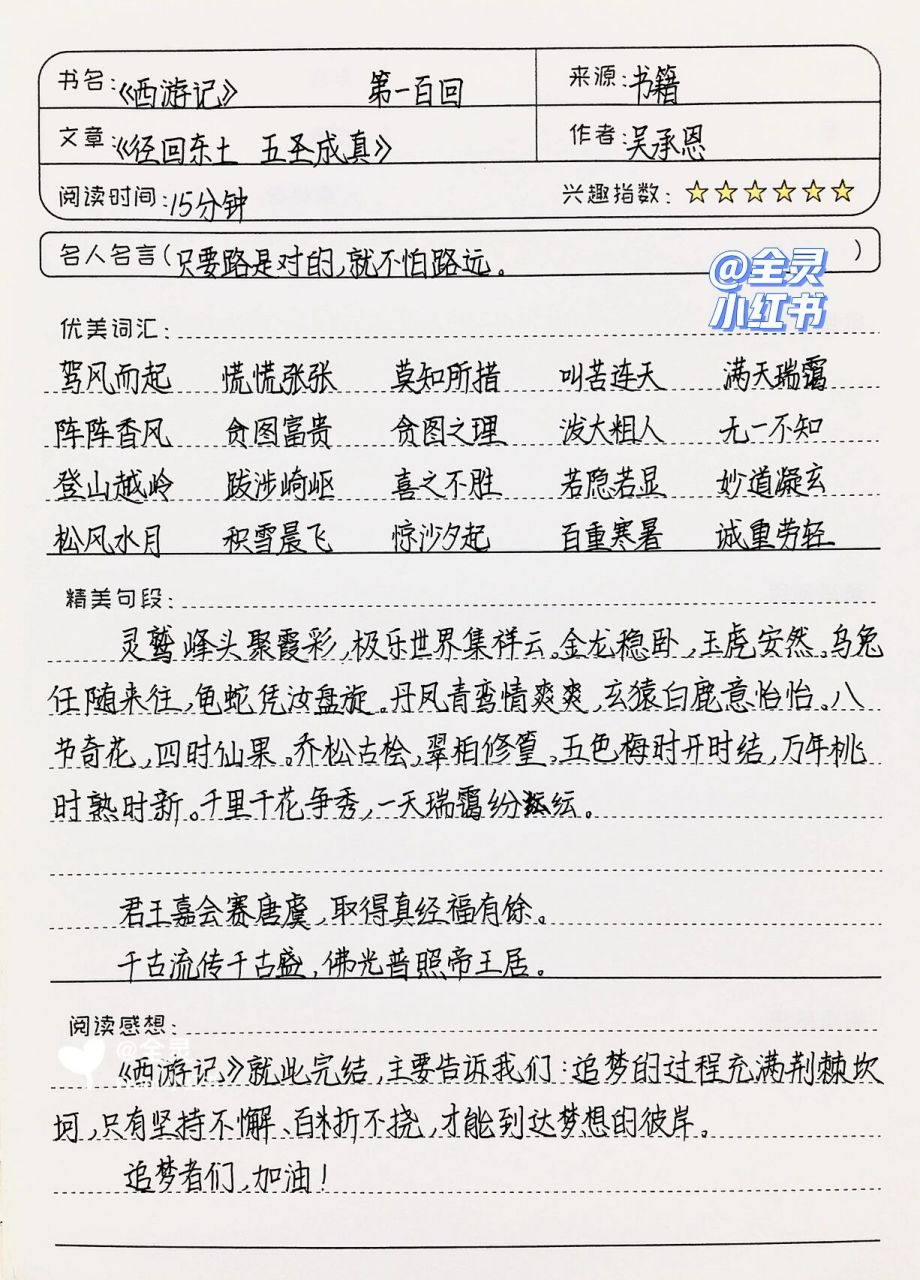 书名:《西游记》 第一百回 来源:书籍
文章:《径回东土 五圣成真》 作者:吴承恩
阅读时间:15分钟 兴趣指数:
名人名言(只要路是对的,就不怕路远。)
@全灵
小红书
优美词汇:
驾风而起 慌慌张张 莫知所措 叫苦连天 满天瑞霭
阵阵香风 贪图富贵 贪图之理 泼大粗人 无一不知
登山越岭 跋涉崎岖 喜之不胜 若隐若显 妙道凝玄
松风水月 积雪晨飞 惊沙夕起 百重寒暑 诚重劳轻
精美句段:
灵鹫峰头聚霞彩,极乐世界集祥云。金龙稳卧,玉虎安然。乌兔
任随来往,龟蛇凭汝盘旋。丹凤青鸾情爽爽,玄猿白鹿意怡怡。八
节奇花,四时仙果。乔松古桧,翠柏修篁。五色梅时开时结,万年桃
时熟时新。千里千花争秀,一天瑞霭纷纭。
君王嘉会赛唐虞,取得真经福有馀。
千古流传千古盛,佛光普照帝王居。
阅读感想:
@全灵
《西游记》就此完结,主要告诉我们:追梦的过程充满荆棘坎
坷,只有坚持不懈、百折不挠,才能到达梦想的彼岸。
追梦者们,加油!